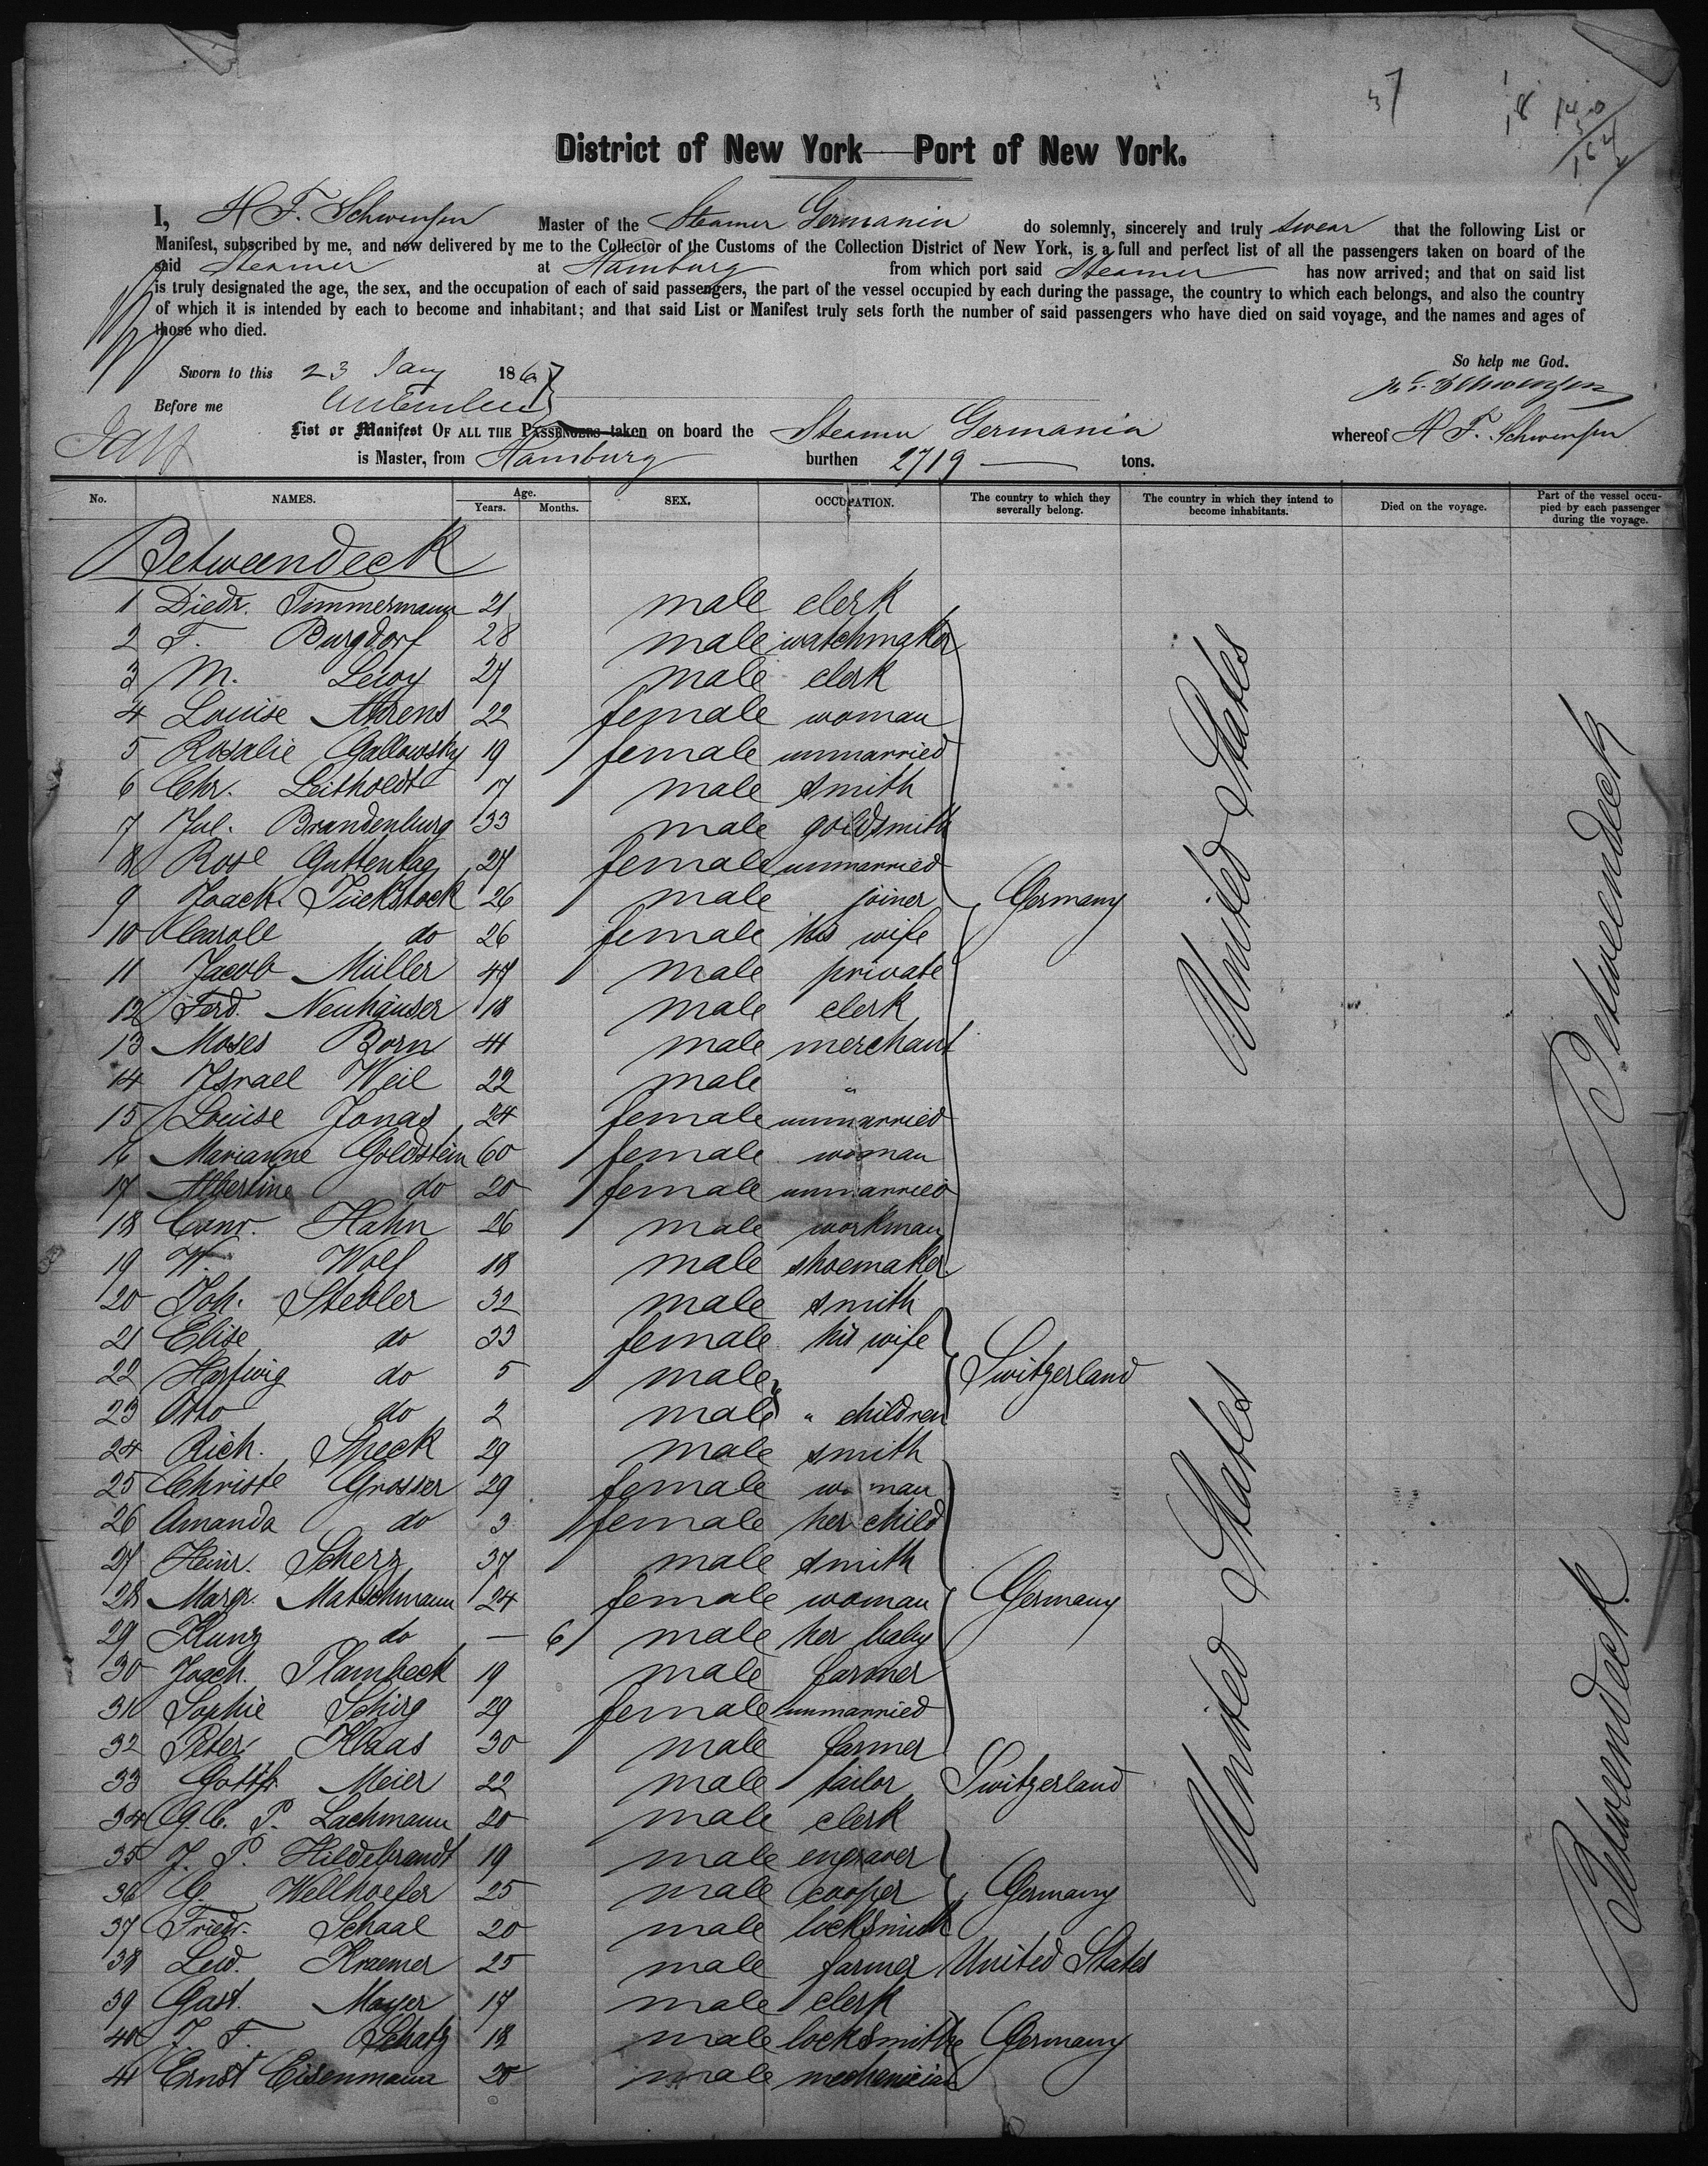 57
18 140
164
District of New York—Port of New York.
I, H F. Schwensen Master of the Steamer Germania do solemnly, sincerely and truly swear that the following List or
Manifest, subscribed by me, and now delivered by me to the Collector of the Customs of the Collection District of New York, is a full and perfect list of all the passengers taken on board of the
said Steamer at Hamburg from which port said Steamer has now arrived; and that on said list
is truly designated the age, the sex, and the occupation of each of said passengers, the part of the vessel occupied by each during the passage, the country to which each belongs, and also the country
of which it is intended by each to become and inhabitant; and that said List or Manifest truly sets forth the number of said passengers who have died on said voyage, and the names and ages of
those who died.
So help me God.
Sworn to this 23 Jany 186
H. F. Schwensen
Before me
List or Manifest OF ALL THE PASSENGERS taken on board the Steamer Germania whereof H F. Schwensen
is Master, from Hamburg burthen 2719 — tons.
No. NAMES. Age. Years. Months. SEX. OCCUPATION. The country to which they severally belong. The country in which they intend to become inhabitants. Died on the voyage. Part of the vessel occupied by each passenger during the voyage.
Betweendeck
1 Diedr. Timmermann 21 male clerk
2 F. Burgdorf 28 male watchmaker
3 M. Levy 27 male clerk
4 Louise Ahrens 22 female woman
5 Rosalie Gallowsky 19 female unmarried
6 Chr. Leitholdt 17 male smith
7 Jul. Brandenburg 33 male goldsmith
8 Rose Guttentag 27 female unmarried
9 Joach. Tückstock 26 male joiner Germany
10 Carole do 26 female his wife
11 Jacob Müller 47 male private
12 Ferd. Neuhäuser 18 male clerk
13 Moses Born 41 male merchant
14 Israel Weil 22 male "
15 Louise Jonas 24 female unmarried
16 Marianne Goldstein 60 female woman
17 Albertine do 20 female unmarried
18 Conr. Hahn 26 male workman
19 W. Wolf 18 male shoemaker
20 Joh. Stebler 32 male smith
21 Elise do 33 female his wife
22 Hartwig do 5 male
Switzerland
23 Otto do 2 male " children
24 Rich. Speck 29 male smith
25 Christe Grosser 29 female woman
26 Amanda do 3 female her child
27 Heinr. Scherz 37 male smith
28 Margr. Matschmann 24 female woman Germany
29 Kunz do — 6 male her baby
30 Joach. Plambeck 19 male farmer
31 Sophie Schirg 29 female unmarried
32 Peter Klaas 30 male farmer
33 Gottfr. Meier 22 male tailor Switzerland
34 G. C. P. Lachmann 20 male clerk
35 J. P. Hildebrandt 19 male engraver
36 G. Wellhoefer 25 male cooper Germany
37 Friedr. Schaal 20 male locksmith
38 Leod. Kraemer 25 male farmer United States
39 Gust. Mayer 17 male clerk
40 J. F. Schatz 18 male locksmith Germany
41 Ernst Eisenmann 20 male mechanician
United States
United States
Betweendeck
Betweendeck